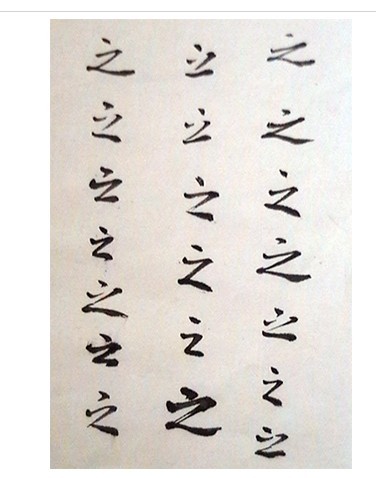 之之之之之之之
之之之之之之
之之之之之之之